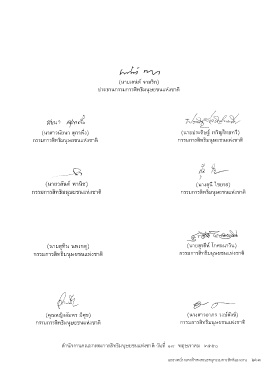 (นายเสน่ห์ จามริก)
ประธานกรรมการสิทธิมนุษยชนแห่งชาติ
(นางสาวนัยนา สุภาพึ่ง)
กรรมการสิทธิมนุษยชนแห่งชาติ
(นายประดิษฐ์ เจริญไทยทวี)
กรรมการสิทธิมนุษยชนแห่งชาติ
(นายวสันต์ พานิช)
กรรมการสิทธิมนุษยชนแห่งชาติ
กรรมการสิทธิมนุษยชนแห่งชาติ
(นายสุทิน นพเกตุ)
กรรมการสิทธิมนุษยชนแห่งชาติ
(นางสุนี ไชยรส)
(นายสุรสีห์ โกศลนาวิน)
กรรมการสิทธิมนุษยชนแห่งชาติ
(คุณหญิงอัมพร มีศุข)
กรรมการสิทธิมนุษยชนแห่งชาติ
(นางสาวอาภร วงษ์สังข์)
กรรมการสิทธิมนุษยชนแห่งชาติ
สำนักงานคณะกรรมการสิทธิมนุษยชนแห่งชาติ วันที่ พฤษภาคม